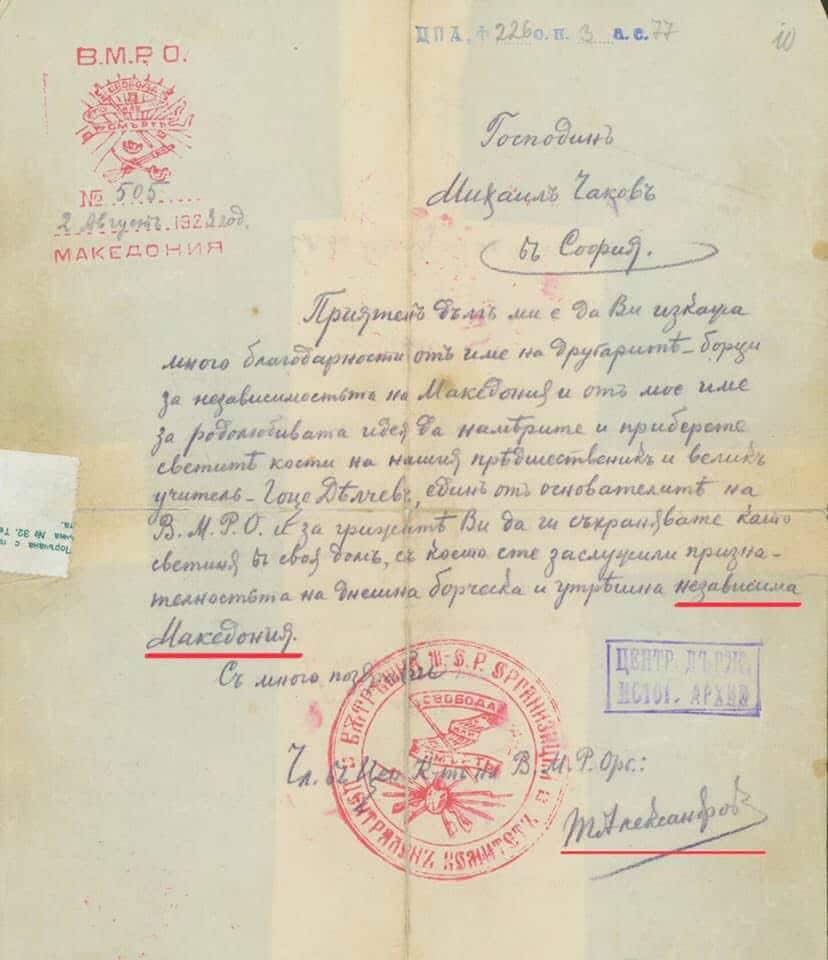 ЦПА, ф 226 о. п. 3 а. е. 77
10
В.М.Р.О.
СВОБОДА ИЛИ
СМЪРТЬ
№ 505
2 Августъ 1923 год.
МАКЕДОНИЯ
Господинъ
Михаилъ Чаковъ
въ София.
Приятенъ дългъ ми е да Ви изкажа
много благодарности отъ име на другаритѣ-борци
за независимостьта на Македония и отъ мое име
за родолюбивата идея да намѣрите и приберете
светитѣ кости на нашия прѣдшественикъ и великъ
учитель-Гоце Дѣлчевъ, единъ отъ основателитѣ на
В.М.Р.О. и за грижитѣ Ви да ги съхранявате като
светиня въ своя домъ, съ което сте заслужили призна-
телностьта на днешна борческа и утрѣшна независима
Македония.
Съ много поздрави
ЦЕНТР. ДЪРЖ.
ИСТОР. АРХИВ
ВѪТРѢШНА М.-О.Р. ОРГАНИЗАЦИЯ
ЦЕНТРАЛЕНЪ КОМИТЕТЪ
СВОБОДА
СМЪРТЬ
Чл. въ Цен. К-тъ на В.М.Р.Орг.:
ТАлександровъ
Поръчана с п
№ 32. Те